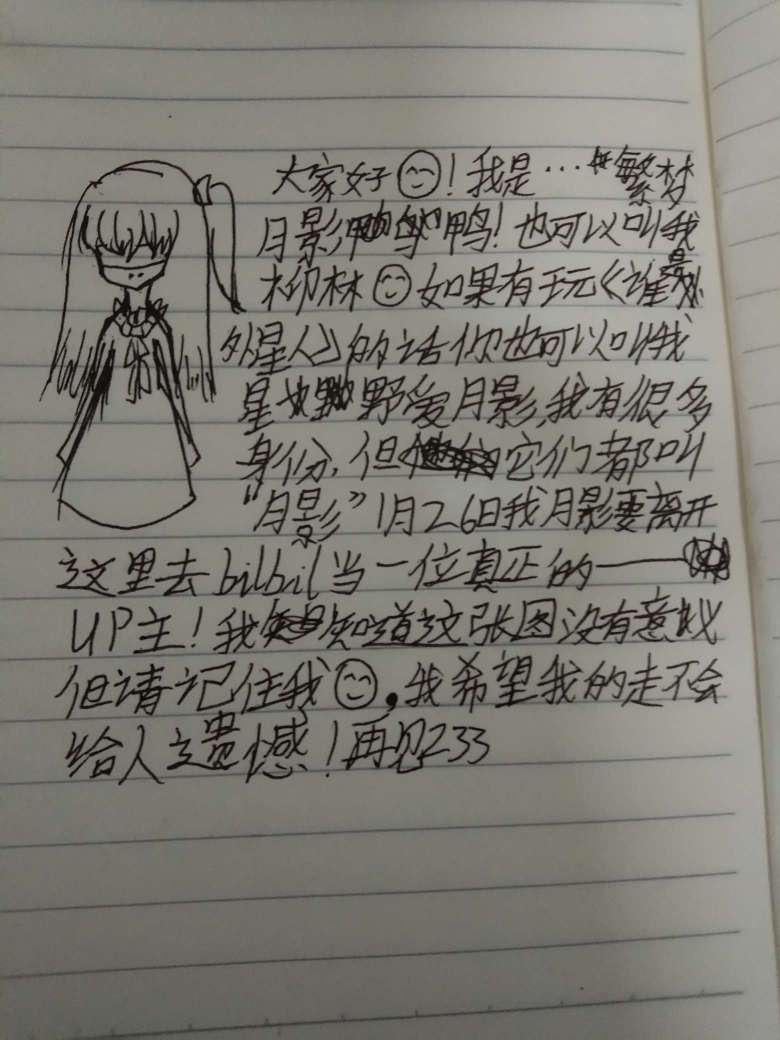 大家好！我是…"繁梦
月影鸭！也可以叫我
柳林 如果有玩《谁是
外星人》的话你也可以叫我
星野爱月影，我有很多
身份，但它们都叫
"月影"1月26日我月影要离开
这里去bilbil当一位真正的——
UP主！我知道这张图没有意义
但请记住我，我希望我的走不会
给人遗憾！再见233